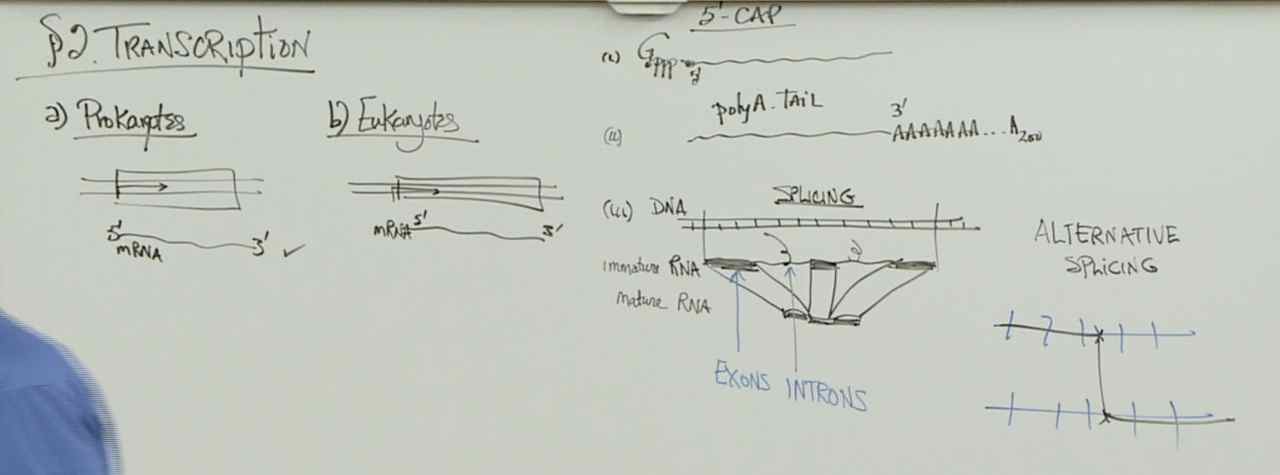 §2. TRANSCRIPTION
a) Prokaryotes
5' 3' ✓
mRNA
b) Eukaryotes
mRNA 5' 3'
5'-CAP
(i) Gppp 5'
polyA-TAIL 3'
(ii) AAAAAAA...A200
SPLICING
(iii) DNA
immature RNA
mature RNA
EXONS INTRONS
ALTERNATIVE
SPLICING